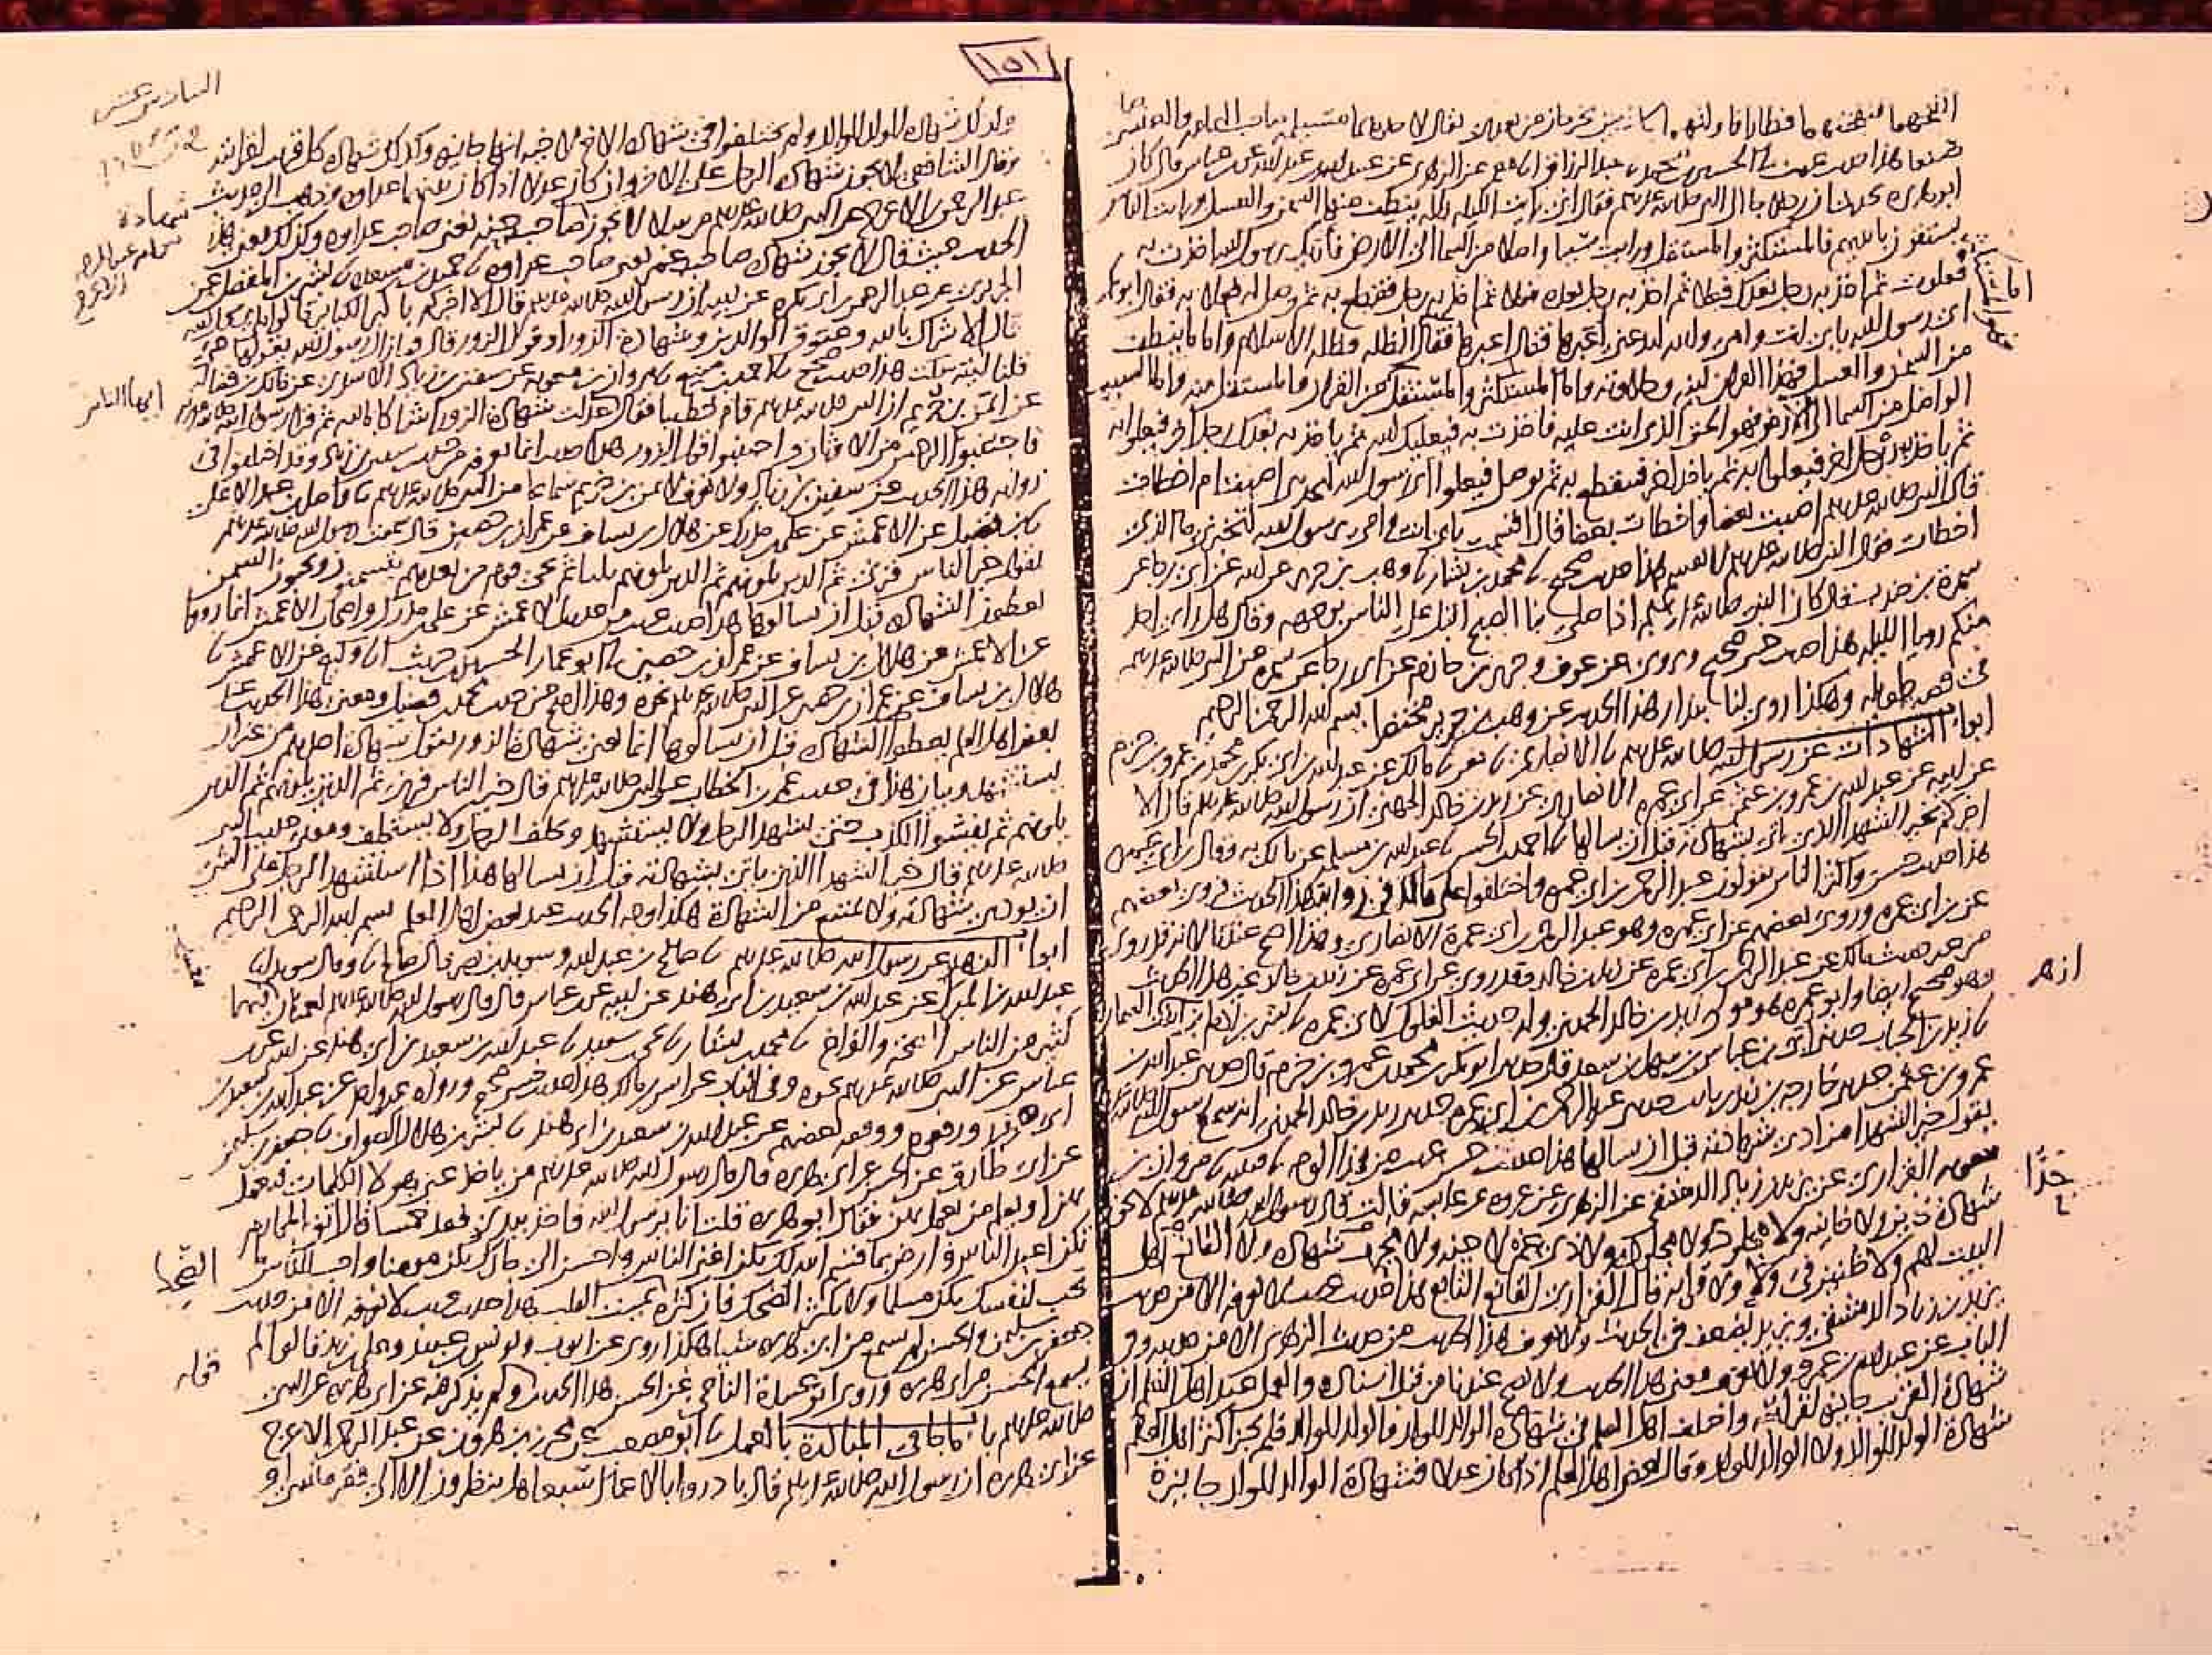 ١٥١
انفخهما فنفختهما فطارا فاولتهما كاذبين يخرجان من بعدي يقال لاحدهما مسيلمة صاحب اليمامة والعنسي
هذا حديث الحسين بن محمد عبد الرزاق انا معمر عن الزهري عن عبيد الله بن عبد الله عن ابن عباس قال كان
ابو هريرة يحدث ان رجلا جا الى النبي صلى الله عليه وسلم فقال اني رايت الليلة ظلة ينطف منها السمن والعسل ورايت الناس
يستقون بايديهم فالمستكثر والمستقل ورايت سببا واصلا من السما الى الارض فاراك يرسول الله اخذت به
فعلوت ثم اخذ به رجل بعدك فعلا ثم اخذ به رجل بعده فعلا ثم اخذ به رجل فقطع به ثم وصل له فعلا به فقال ابو بكر
اي رسول الله بابي انت وامي والله لتدعني اعبرها فقال اعبرها فقال اما الظلة فظلة الاسلام واما ما ينطف
من السمن والعسل فهذا القران لينه وحلاوته واما المستكثر والمستقل من القران والمستقل منه واما السبب
الواصل من السما الى الارض فهو الحق الذي انت عليه فاخذت به فيعليك الله ثم ياخذ به بعدك رجل اخر فيعلوا به
ثم ياخذ به رجل اخر فيعلوا به ثم ياخذ اخر فينقطع به ثم يوصل فيعلوا اي رسول الله لتحدثني اصبت ام اخطات
قال النبي صلى الله عليه وسلم اصبت بعضا واخطات بعضا قال اقسمت بابي انت وامي يرسول الله لتخبرني ما الذي
اخطات فقال النبي صلى الله عليه وسلم لا تقسم هذا حديث صحيح نا محمد بن بشار نا وهب بن جرير عن ابيه عن ابي رجا عن
سمرة بن جندب قال كان النبي صلى الله عليه وسلم اذا صلى بنا الصبح اقبل على الناس بوجهه وقال هل راى احد
منكم رويا الليلة هذا حديث حسن صحيح ويروى عن عوف وجرير بن حازم عن ابي رجا عن سمرة عن النبي صلى الله عليه وسلم
في قصة طويلة وهكذا روى لنا بندار هذا الحديث عن وهب بن جرير مختصرا بسم الله الرحمن الرحيم
ابواب الشهادات عن رسول الله صلى الله عليه وسلم نا الانصاري نا معن نا مالك عن عبد الله بن ابي بكر بن محمد بن عمرو بن حزم
عن ابيه عن عبد الله بن عمرو بن عثمن عن ابي عمرة الانصاري عن زيد بن خالد الجهني ان رسول الله صلى الله عليه وسلم قال الا
اخبركم بخير الشهدا الذي ياتي بشهادته قبل ان يسالها نا احمد بن الحسن نا عبد الله بن مسلمة عن مالك به وقال ابن ابي عمرة
هذا حديث حسن واكثر الناس يقولون عبد الرحمن بن ابي عمرة واختلفوا على مالك في رواية هذا الحديث فروى بعضهم
عن ابن ابي عمرة وروى بعضهم عن ابي عمرة وهو عبد الرحمن بن ابي عمرة الانصاري وهذا اصح عندنا لانه قد روي
من حديث مالك عن عبد الرحمن بن ابي عمرة عن زيد بن خالد وقد روي عن ابي عمرة عن زيد بن خالد غير هذا الحديث
وهو صحيح ايضا وابو عمرة هو مولى زيد بن خالد الجهني وله حديث الغلول لابي عمرة نا بشر بن ادم بن بنت ازهر السمان
نا زيد بن الحباب حدثني ابي بن عباس بن سهل بن سعد قال حدثني ابو بكر بن محمد بن عمرو بن حزم قال حدثني عبد الله بن
عمرو بن عثمن حدثني خارجة بن زيد بن ثابت حدثني عبد الرحمن بن ابي عمرة حدثني زيد بن خالد الجهني انه سمع رسول الله صلى الله عليه
يقول خير الشهدا من ادى شهادته قبل ان يسالها هذا حديث حسن غريب من هذا الوجه نا قتيبة نا مروان بن
معوية الفزاري عن يزيد بن زياد الدمشقي عن الزهري عن عروة عن عايشة قالت قال رسول الله صلى الله عليه وسلم لا تجوز
شهادة خاين ولا خاينة ولا مجلود حدا ولا مجلودة ولا ذي غمر لاخيه ولا مجرب شهادة ولا القانع اهل
البيت لهم ولا ظنين في ولا ولا قرابة قال الفزاري القانع التابع هذا حديث غريب لا نعرفه الا من حديث
يزيد بن زياد الدمشقي ويزيد يضعف في الحديث ولا يعرف هذا الحديث من حديث الزهري الا من حديثه وفي
الباب عن عبد الله بن عمرو ولا نعرف معنى هذا الحديث ولا يصح عندنا من قبل اسناده والعمل عند اهل العلم ان
شهادة القريب جايزة لقرابته واختلف اهل العلم في شهادة الوالد للولد والولد للوالد فلم يجز اكثر اهل العلم
شهادة الولد للوالد ولا الوالد للولد وقال بعض اهل العلم اذا كان عدلا فشهادة الوالد للولد جايزة
ازهر
حدا
السادس عشر
وكذلك شهادة الولد للوالد ولم يختلفوا في شهادة الاخ لاخيه انها جايزة وكذلك شهادة كل قريب لقرابته
وقال الشافعي لا تجوز شهادة الرجل على الاخر وان كان عدلا اذا كان بينهما عداوة وذهب الى حديث
عبد الرحمن الاعرج عن النبي صلى الله عليه وسلم مرسلا لا تجوز شهادة صاحب حنة يعني صاحب عداوة وكذلك معنى هذا
الحديث حيث قال لا تجوز شهادة صاحب غمر يعني صاحب عداوة نا حميد بن مسعدة نا بشر بن المفضل عن
الجريري عن عبد الرحمن بن ابي بكرة عن ابيه ان رسول الله صلى الله عليه وسلم قال الا اخبركم باكبر الكباير قالوا بلى يرسول الله
قال الاشراك بالله وعقوق الوالدين وشهادة الزور او قول الزور قال فما زال رسول الله يقولها حتى
قلنا ليته سكت هذا حديث صحيح نا احمد بن منيع نا مروان بن معوية عن سفين بن زياد الاسدي عن فاتك بن فضالة
عن ايمن بن خريم ان النبي صلى الله عليه وسلم قام خطيبا فقال عدلت شهادة الزور اشراكا بالله ثم قرا رسول الله صلى الله عليه وسلم
فاجتنبوا الرجس من الاوثان واجتنبوا قول الزور هذا حديث انما نعرفه من حديث سفين بن زياد وقد اختلفوا في
رواية هذا الحديث عن سفين بن زياد ولا نعرف لايمن بن خريم سماعا من النبي صلى الله عليه وسلم نا واصل بن عبد الاعلى
نا بن فضيل عن الاعمش عن علي بن مدرك عن هلال بن يساف عن عمران بن حصين قال سمعت رسول الله صلى الله عليه وسلم
يقول خير الناس قرني ثم الذين يلونهم ثم الذين يلونهم ثلثا ثم يجي قوم من بعدهم يتسمنون ويحبون السمن
يعطون الشهادة قبل ان يسالوها هذا حديث غريب من حديث الاعمش عن علي بن مدرك واصحاب الاعمش انما رووا
عن الاعمش عن هلال بن يساف عن عمران بن حصين نا ابو عمار الحسين بن حريث انا وكيع عن الاعمش نا
هلال بن يساف عن عمران بن حصين عن النبي صلى الله عليه وسلم نحوه وهذا اصح من حديث محمد بن فضيل ومعنى هذا الحديث عند
بعض اهل العلم يعطون الشهادة قبل ان يسالوها انما يعني شهادة الزور يقول شهادة احدهم من غير ان
يستشهد وبيان هذا في حديث عمر بن الخطاب عن النبي صلى الله عليه وسلم قال خير الناس قرني ثم الذين يلونهم ثم الذين
يلونهم ثم يفشوا الكذب حتى يشهد الرجل ولا يستشهد ويحلف الرجل ولا يستحلف ومعنى حديث النبي
صلى الله عليه وسلم قال خير الشهدا الذي ياتي بشهادته قبل ان يسالها هذا اذا استشهد الرجل على الشي
ان يودي شهادته ولا يمتنع من الشهادة هكذا وجه الحديث عند بعض اهل العلم بسم الله الرحمن الرحيم
ابواب الزهد عن رسول الله صلى الله عليه وسلم نا صالح بن عبد الله وسويد بن نصر قال صالح نا وقال سويد انا
عبد الله بن المبارك عن عبد الله بن سعيد بن ابي هند عن ابيه عن ابن عباس قال قال رسول الله صلى الله عليه وسلم نعمتان فيهما
كثير من الناس الصحة والفراغ نا محمد بن بشار نا يحيى بن سعيد نا عبد الله بن سعيد بن ابي هند عن ابيه عن
عباس عن النبي صلى الله عليه وسلم نحوه وفي الباب عن انس بن مالك هذا حديث حسن صحيح ورواه غير واحد عن عبد الله بن سعيد بن
ابي هند ورفعوه ووقفه بعضهم عن عبد الله بن سعيد بن ابي هند نا بشر بن هلال الصواف نا جعفر بن سليمن
عن ابي طارق عن الحسن عن ابي هريرة قال قال رسول الله صلى الله عليه وسلم من ياخذ عني هولا الكلمات فيعمل
بهن او يعلم من يعمل بهن فقال ابو هريرة قلت انا يرسول الله فاخذ بيدي فعد خمسا قال اتق المحارم
تكن اعبد الناس وارض بما قسم الله لك تكن اغنى الناس واحسن الى جارك تكن مومنا واحب للناس ما
تحب لنفسك تكن مسلما ولا تكثر الضحك فان كثرة الضحك تميت القلب هذا حديث غريب لا نعرفه الا من حديث
جعفر بن سليمن والحسن لم يسمع من ابي هريرة شيا هكذا روي عن ايوب ويونس بن عبيد وعلي بن زيد قالوا لم
يسمع الحسن من ابي هريرة وروى ابو عبيدة الناجي عن الحسن هذا الحديث ولم يذكر فيه عن ابي هريرة عن النبي
صلى الله عليه وسلم باب ما جا في المبادرة بالعمل نا ابو مصعب عن محرز بن هرون عن عبد الرحمن الاعرج
عن ابي هريرة ان رسول الله صلى الله عليه وسلم قال بادروا بالاعمال سبعا هل ينظرون الا الى فقر منسي او
شهادة
ايها الناس